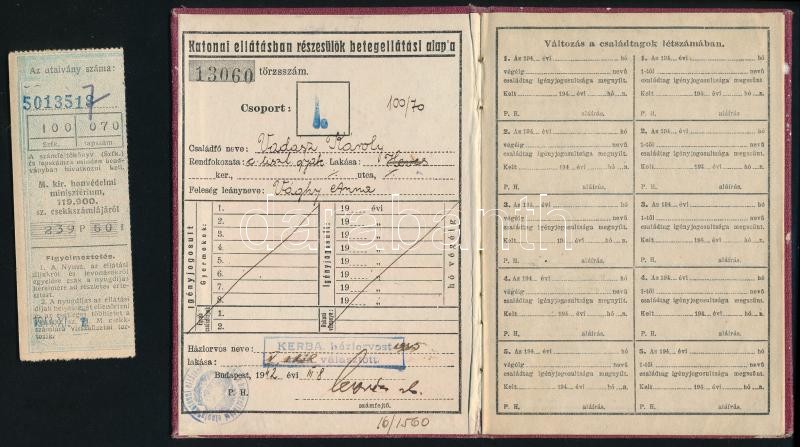 Az utalvány száma:
5013518
7
100 070
Szfk. lapszám
A számfejtőkönyv (Szfk.)
és lapszámra minden bead-
ványban hivatkozni kell.
M. kir. honvédelmi
minisztérium,
119.900.
sz. csekkszámlájáról
239 P 60 f
Figyelmeztetés.
1. A Nyunz. az ellátási
díjakról és levonásokról
egyelőre csak a nyugdíjas
kérelmére ad részletes érte-
sítést.
2. A nyugdíjas az ellátási
Katonai ellátásban részesülők betegellátási alapja
13060 törzsszám.
Csoport: I.
100/70
Családfő neve: Vadász Károly
Rendfokozata: Lakása: Heves
ker., utca,
Feleség leányneve: Vághy Anna
Igényjogosult
Gyermekek:
1.
2.
3.
4.
5.
6.
7.
8.
Igényjogosult:
19 évi
19 „
19 „
19 „
19 „
19 „
19 „
19 „
hó végéig
1.
2.
Háziorvos neve:
KERBA háziorvost
választott
lakása:
Budapest, 1942 évi III 8
P. H.
számfejtő.
16/1560
Változás a családtagok létszámában.
1. Az 194... évi hó
végéig nevű
családtag igényjogosultsága megnyílt.
Kelt 194... évi hó n.
P. H. aláírás.
1. Az 194... évi hó
1-től nevű
családtag igényjogosultsága megszűnt.
Kelt 194... évi hó n.
P. H. aláírás.
2. Az 194... évi hó
végéig nevű
családtag igényjogosultsága megnyílt.
Kelt 194... évi hó n.
P. H. aláírás.
2. Az 194... évi hó
1-től nevű
családtag igényjogosultsága megszűnt.
Kelt 194... évi hó n.
P. H. aláírás.
3. Az 194... évi hó
végéig nevű
családtag igényjogosultsága megnyílt.
Kelt 194... évi hó n.
P. H. aláírás.
3. Az 194... évi hó
1-től nevű
családtag igényjogosultsága megszűnt.
Kelt 194... évi hó n.
P. H. aláírás.
4. Az 194... évi hó
végéig nevű
családtag igényjogosultsága megnyílt.
Kelt 194... évi hó n.
P. H. aláírás.
4. Az 194... évi hó
1-től nevű
családtag igényjogosultsága megszűnt.
Kelt 194... évi hó n.
P. H. aláírás.
5. Az 194... évi hó
végéig nevű
családtag igényjogosultsága megnyílt.
Kelt 194... évi hó n.
P. H. aláírás.
5. Az 194... évi hó
1-től nevű
családtag igényjogosultsága megszűnt.
Kelt 194... évi hó n.
P. H. aláírás.
darabanth